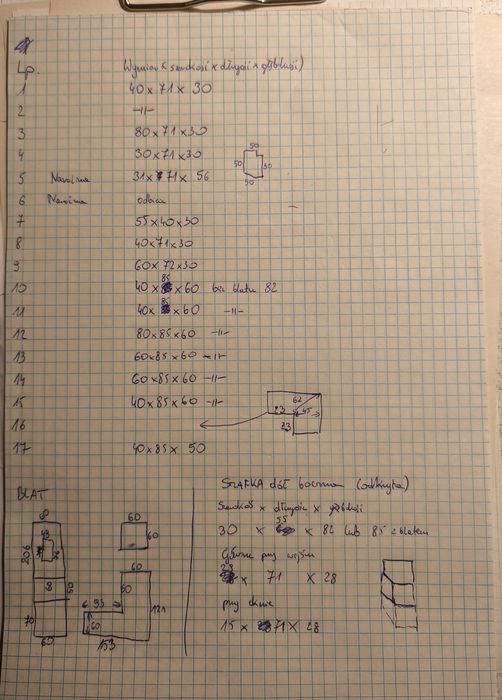 Lp. Wymiar (szerokość x długość x głębkość)
1 40 x 71 x 30
2 -||-
3 80 x 71 x 30
4 30 x 71 x 30
5 Narożna 31 x 71 x 56
6 Narożna odbicie
7 55 x 40 x 30
8 40 x 71 x 30
9 60 x 72 x 30
10 40 x 85 x 60 bez blatu 82
11 40 x 85 x 60 -||-
12 80 x 85 x 60 -||-
13 60 x 85 x 60 -||-
14 60 x 85 x 60 -||-
15 40 x 85 x 60 -||-
16
17 40 x 85 x 50
50
50 30
50
62
23 45
23
BLAT
206
50
70
60
60
60
60
93
60
121
153
SZAFKA dół boczna (odkryta)
Szerokość x długość x głębkość
30 x 55 x 82 lub 85 z blatem
Górne przy wejściu
28 x 71 x 28
przy oknie
15 x 71 x 28